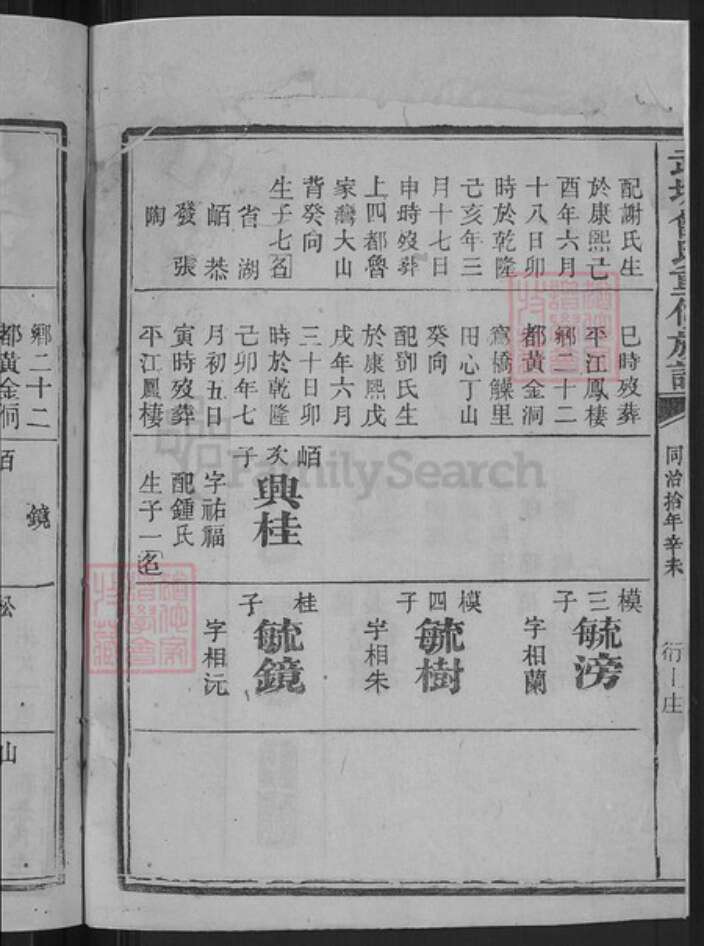 同治拾年辛未
配謝氏生
於康熙己
酉年六月
十八日卯
時於乾隆
己亥年三
月十七日
申時歿葬
上四都魯
家灣大山
背癸向
生子七名
省湖
峏恭
發張
陶
巳時歿葬
平江鳳棲
鄉二十二
都黃金洞
窩橋鰷里
田心丁山
癸向
配鄧氏生
於康熙戊
戌年六月
三十日卯
時於乾隆
己卯年七
月初五日
寅時歿葬
平江鳳棲
峏次子
興桂
字祐福
配鍾氏
生子一名
模三子
毓滂
字相蘭
模四子
毓樹
字相朱
桂子
毓鏡
字相沅
鄉二十二
都黃金洞
鏡
FamilySearch